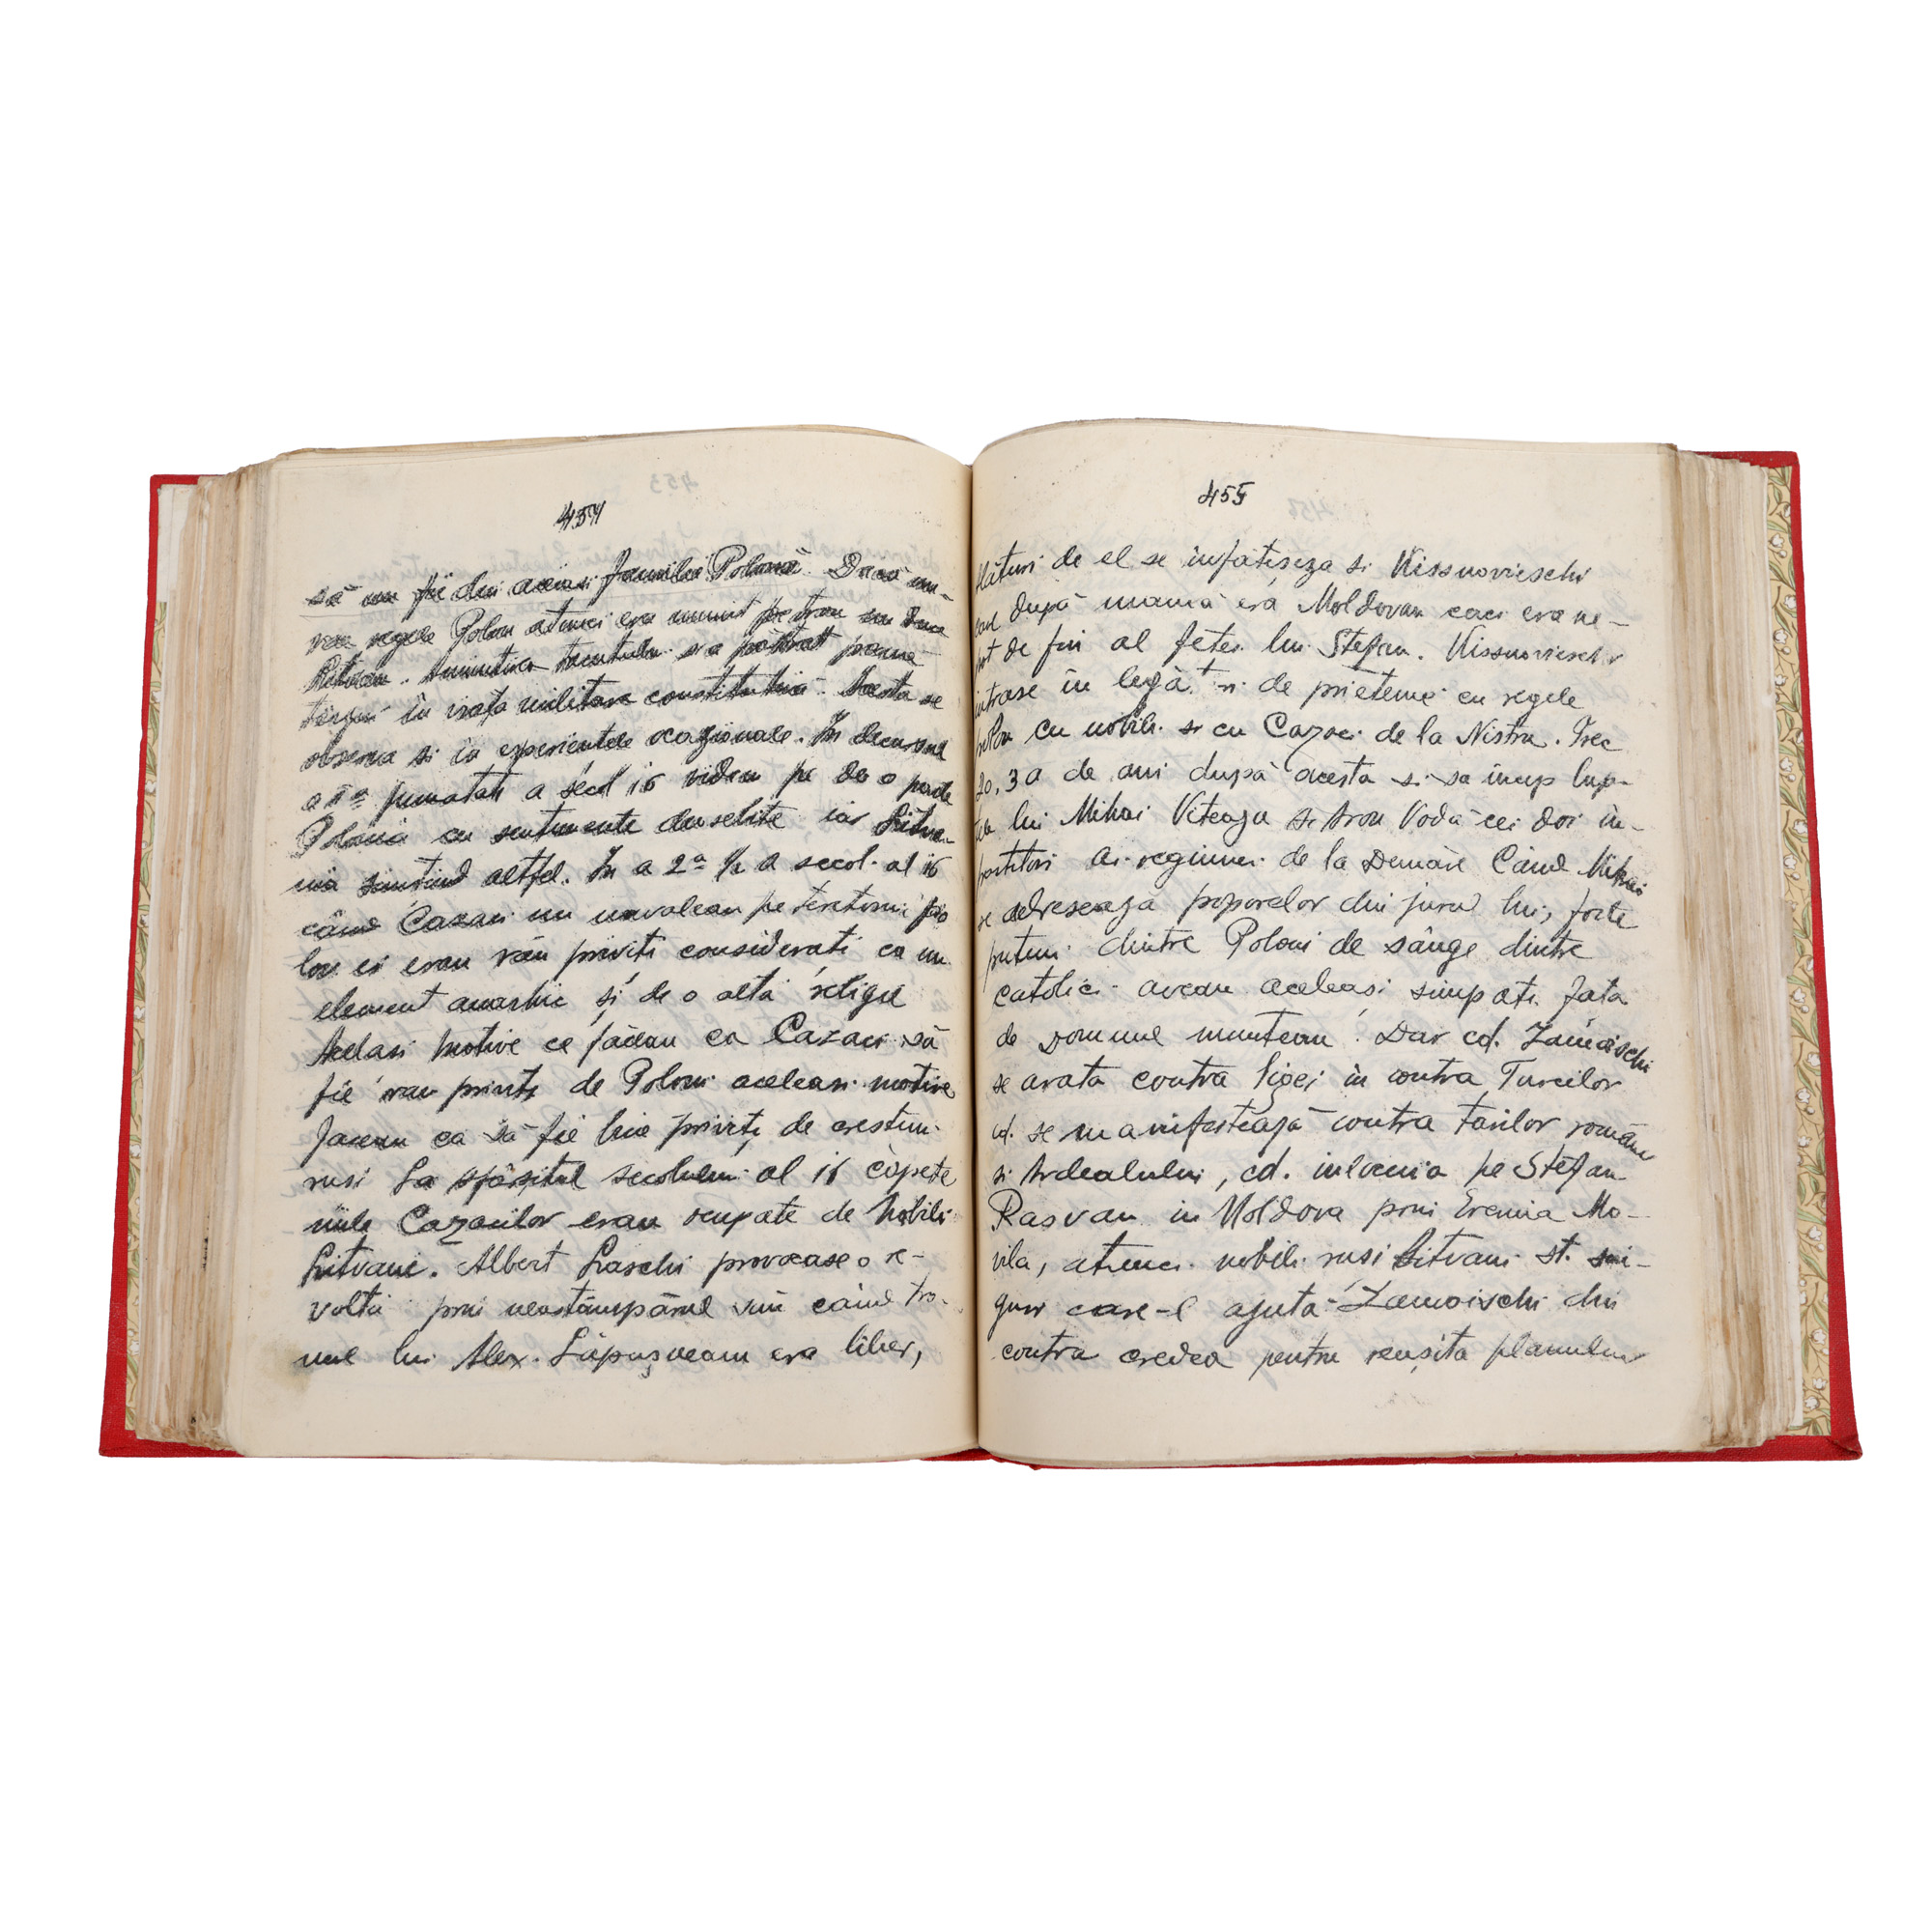 454
să nu fie din aceiasi familie Polonă. Dacă mu-
rea regele Polon atunci era numit pe tron un Duce
Litvan. Amintirea tractatului s-a păstrat
în viața militara constitutină. Acesta se
observa si in experientele ocazionale. In decursul
a IIa jumatati a secol 16 videm pe de o parte
Polonia cu sentimente deosebite iar Litva-
nia simtind altfel. In a 2a 1/2 a secol. al 16
când Cazaci nu navaleau pe teritoriu po
lon ei erau rău priviti considerati ca un
element anarhic și de o alta religie
Acelasi motive ce făceau ca Cazaci să
fie rau priviti de Poloni aceleasi motive
faceau ca să fie bine priviți de crestini
rusi La sfârsitul secolului al 16 căpete
niile Cazacilor erau ocupate de Nobili
Litvani. Albert Laschi provocase o re-
volta prin neastâmpărul său când tro-
nul lui Alex. Lăpușneanu era liber,
453
455
Alături de el se infătiseza si Wissnovieschi
care după mamă eră Moldovan caci era ne-
pot de fiu al fetei lui Stefan. Wissnovieschi
intrase în legăt. si de prietenie cu regele
polon cu nobili si cu Cazaci de la Nistru. Trec
20, 30 de ani după acesta si sa incep lup-
tele lui Mihai Viteazu si Aron Vodă cei doi în-
partitori ai regiunei de la Dunăre Când Mihai
se adreseaza popoarelor din jurul lui, forte
putini dintre Poloni de sânge dintre
catolici aveau aceleasi simpati fata
de Domnul muntean. Dar cd. Zamoischi
se arata contra ligei in contra Turcilor
cd. se manifestează contra tarilor române
si Ardealului, cd. inlocuia pe Stefan
Rasvan in Moldova prin Eremia Mo-
vila, atunci nobili rusi Litvani st. sin-
guri care-l ajuta Zamoischi din
contra credea pentru reușita planului